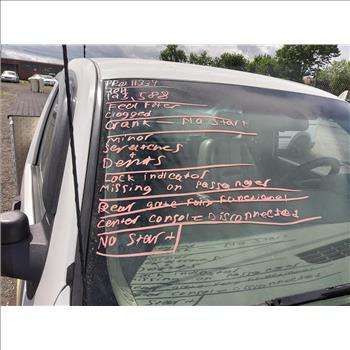 588
Feul Filter
Clogged
Crank - No Start
Minor
Scratches
+
Dents
Lock indicator
Missing on Passenger
Rear gate functional
Center Consol = Disconnected
No Start